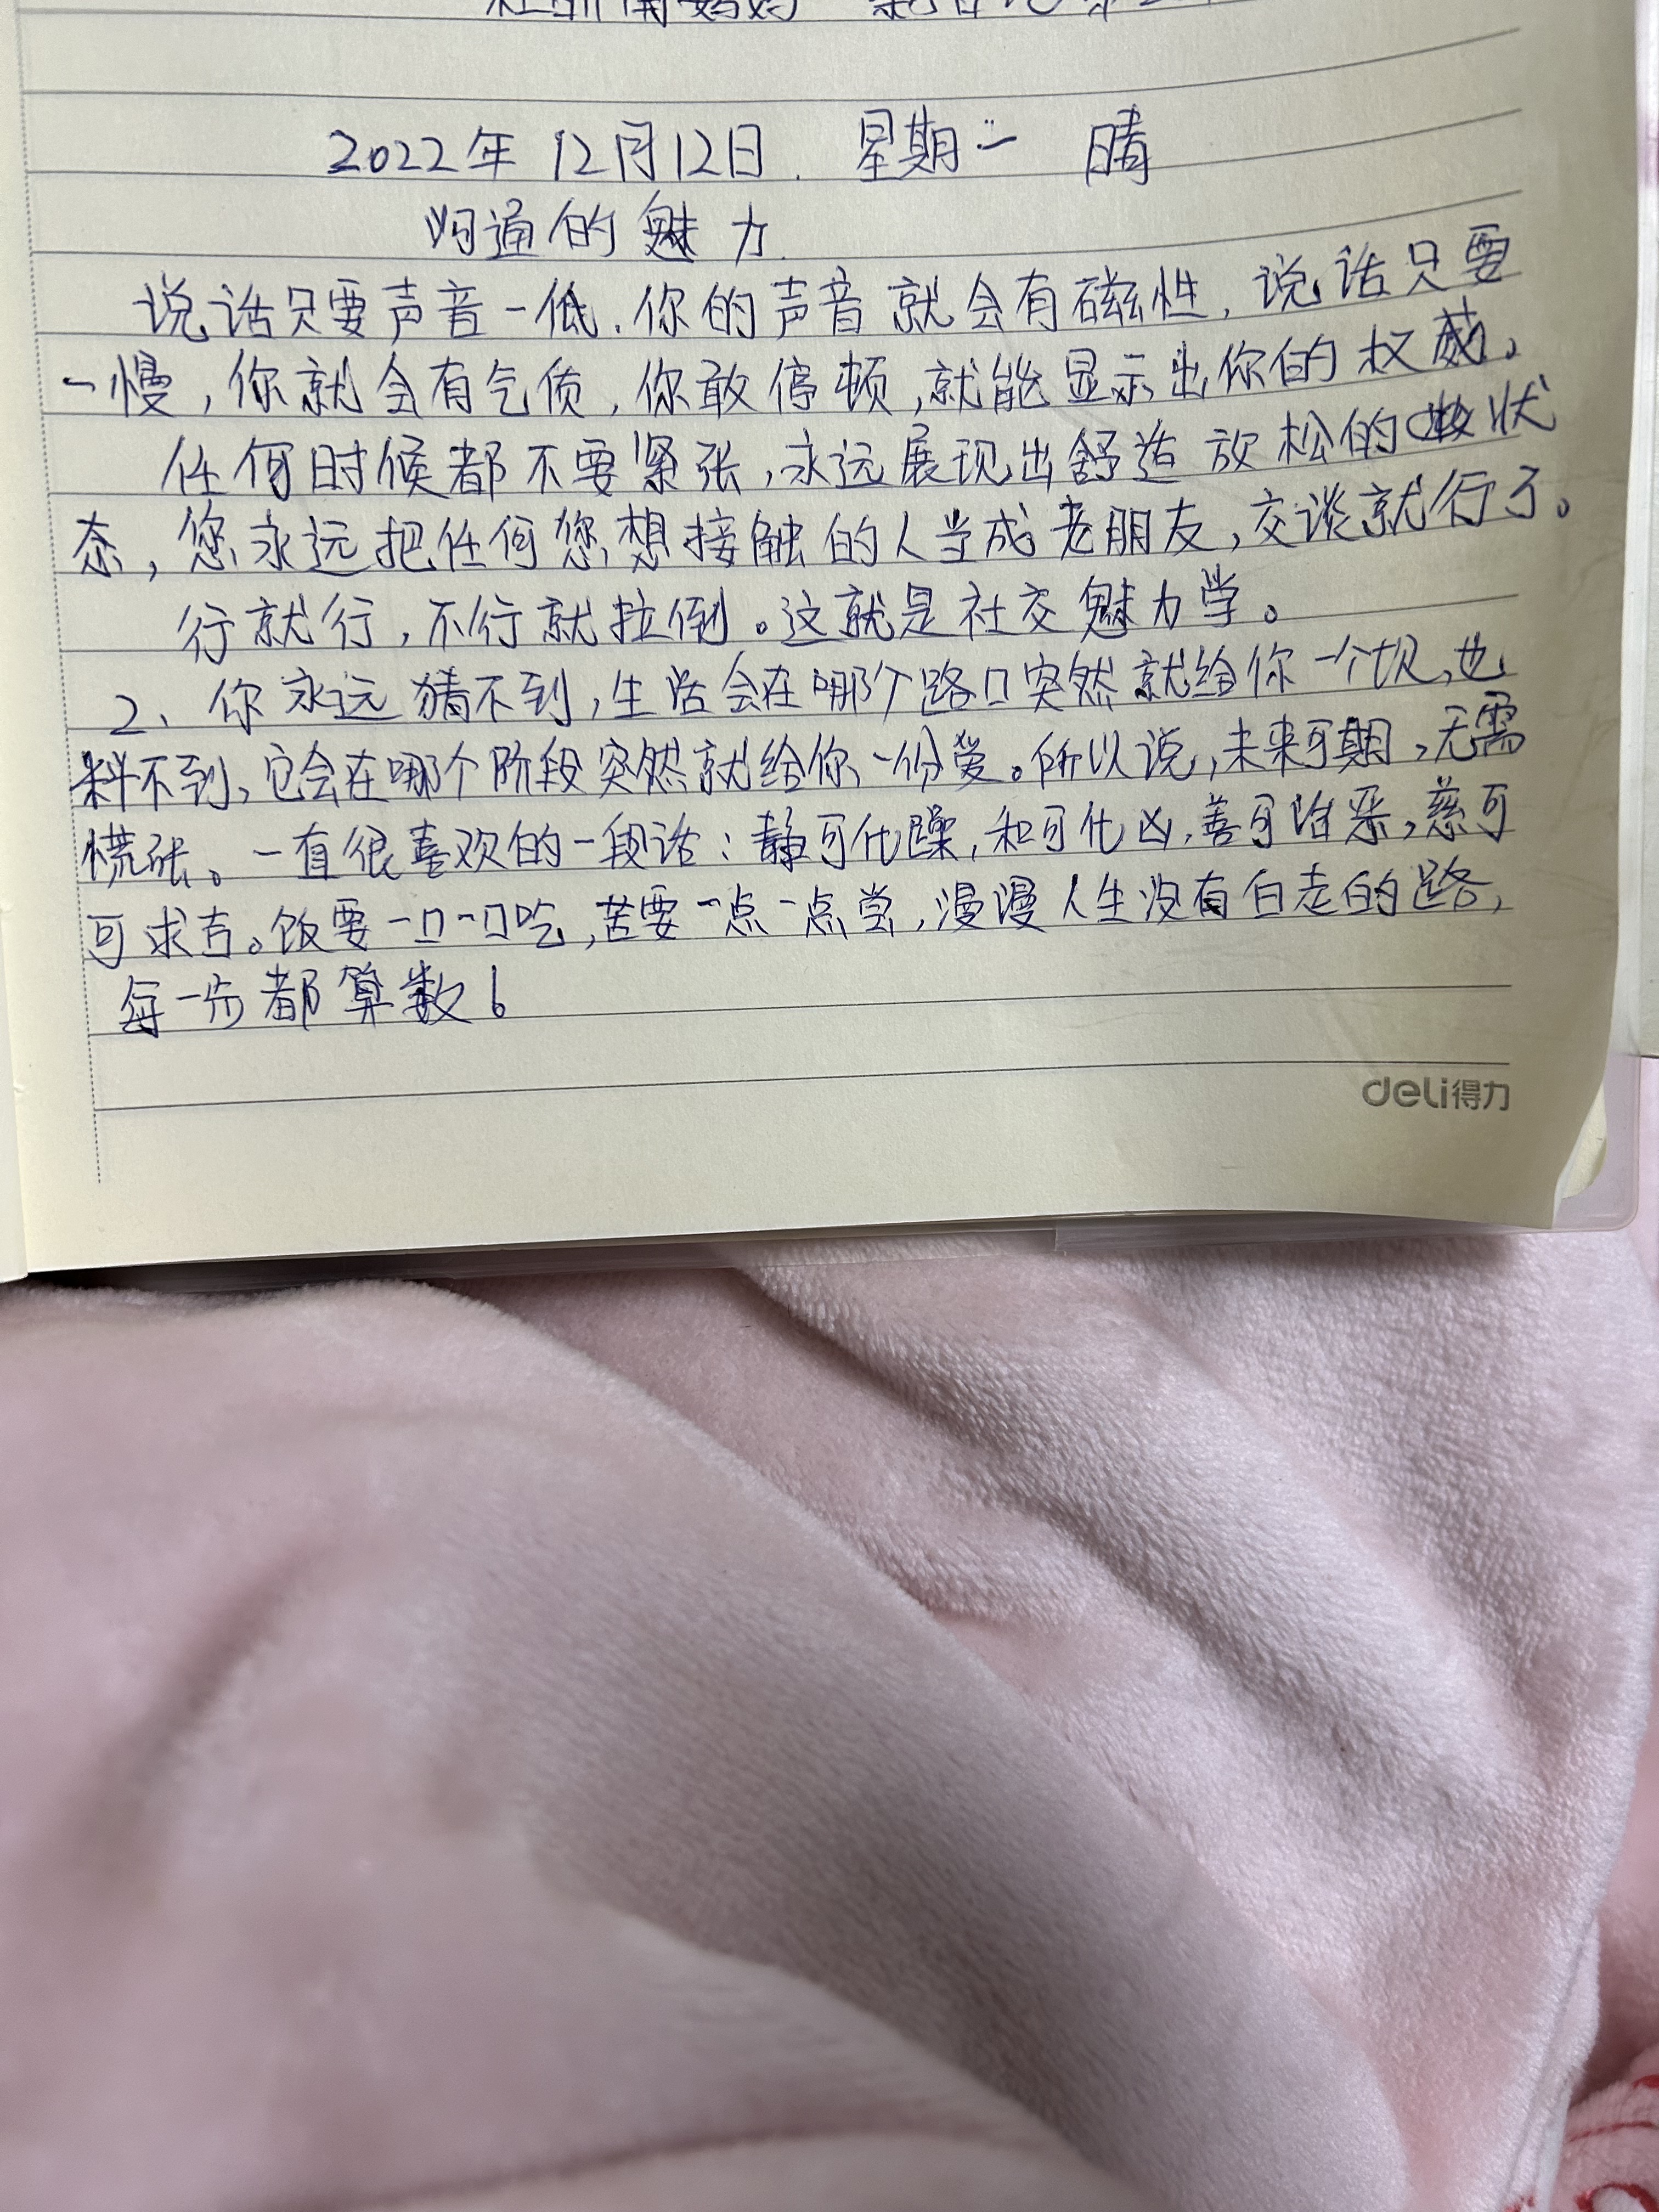 2022年12月12日. 星期一 晴
沟通的魅力
说话只要声音一低,你的声音就会有磁性,说话只要
一慢,你就会有气质,你敢停顿,就能显示出你的权威。
任何时候都不要紧张,永远展现出舒适放松的状
态,您永远把任何您想接触的人当成老朋友,交谈就行了。
行就行,不行就拉倒。这就是社交魅力学。
2、你永远猜不到,生活会在哪个路口突然就给你一个坎,也
料不到,它会在哪个阶段突然就给你一份爱。所以说,未来可期,无需
慌张。一直很喜欢的一段话:静可化躁,和可化凶,善可治恶,慈可
可求吉。饭要一口一口吃,苦要一点一点尝,漫漫人生没有白走的路,
每一步都算数!
deli得力